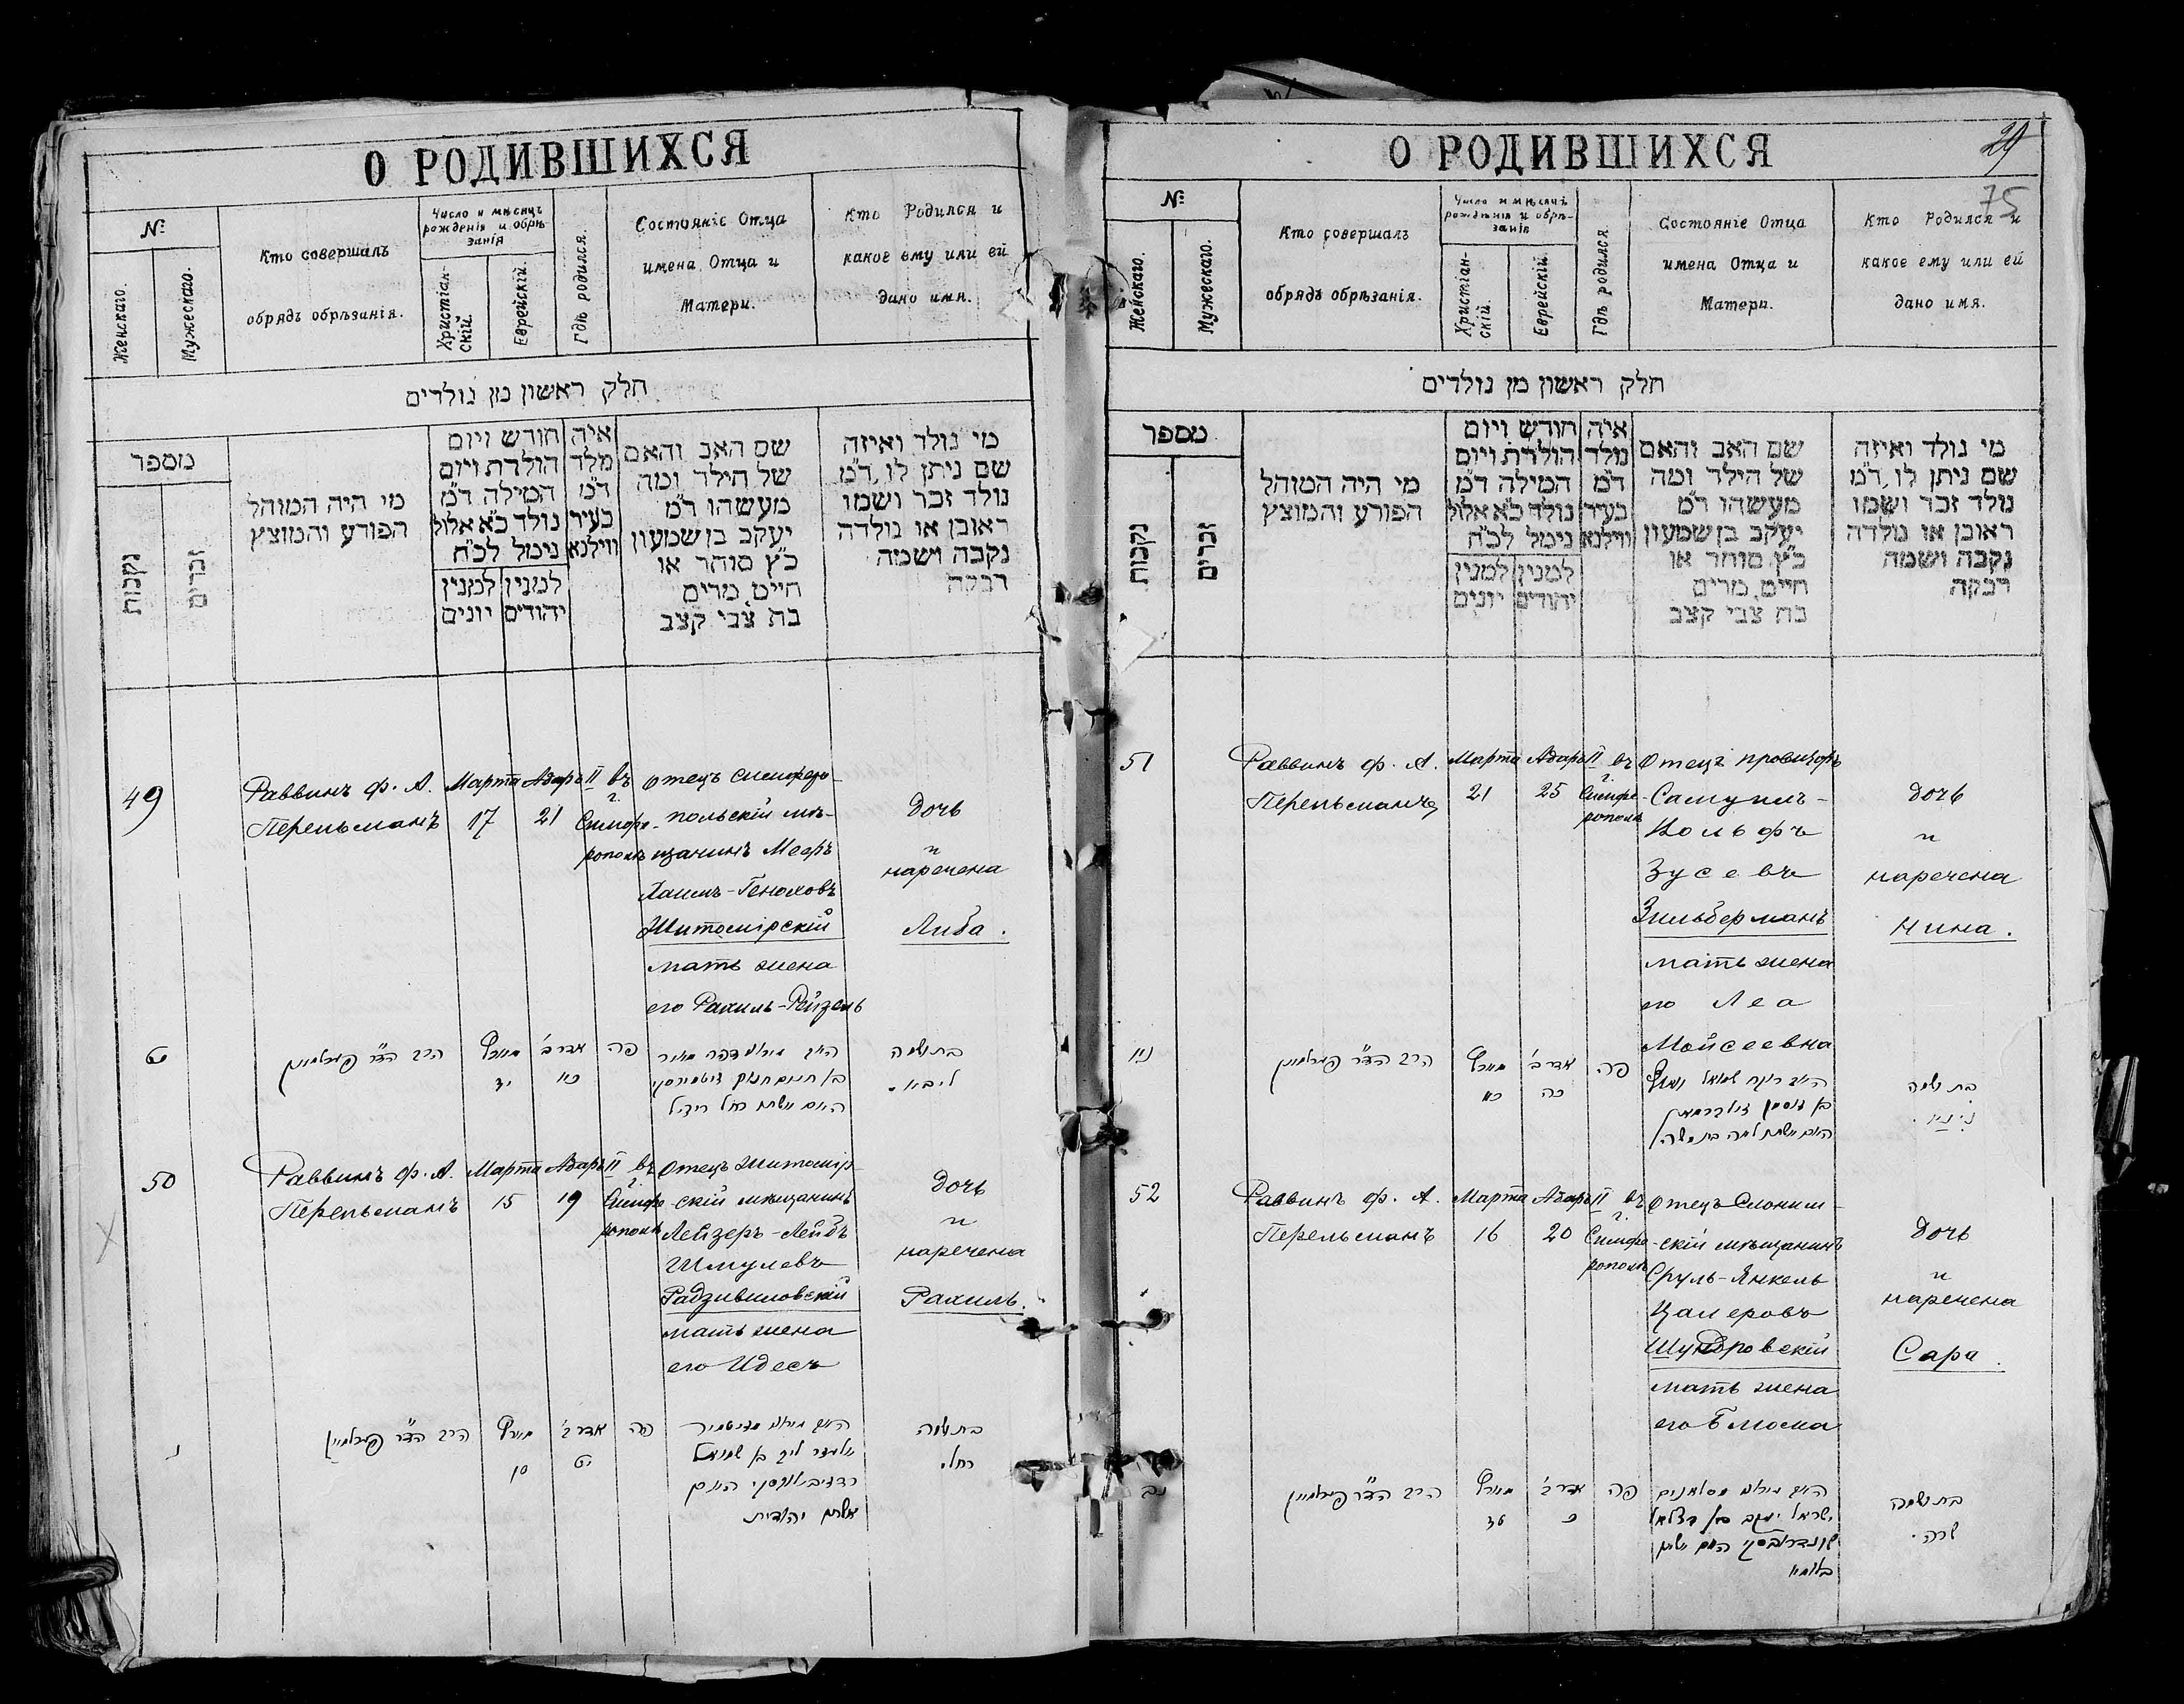 О РОДИВШИХСЯ
№
Женскаго.
Мужескаго.
Кто совершалъ
обрядъ обрѣзанія.
Число и мѣсяцъ
рожденія и обрѣ-
занія
Христіан-
скій.
Еврейскій.
Гдѣ родился.
Состояніе Отца
имена Отца и
Матери.
Кто Родился и
какое ему или ей
дано имя.
חלק ראשון מן נולדים
מספר
נקבות
זכרים
מי היה המוהל
הפורע והמוצץ
חודש ויום
הולדת ויום
המילה ד״מ
נולד כ״א אלול
נימל לכ״ח
למנין יהודים
למנין יונים
איה
מלד
ד״מ
בעיר
ווילנא
שם האב והאם
של הילד ומה
מעשהו ד״מ
יעקב בן שמעון
כ״ץ סוחר או
חייט, מרים
בת צבי קצב
מי נולד ואיזה
שם ניתן לו, ד״מ
נולד זכר ושמו
ראובן או נולדה
נקבה ושמה
רבקה
49
Раввинъ ф. А.
Перельманъ
Марта
17
Адаръ II
21
въ
г.
Симфе-
рополѣ
Отецъ симферо-
польскій мѣ-
щанинъ Мееръ
Хаимъ-Геноховъ
Житомірскій
мать жена
его Рахиль-Рейзель
Дочь
и
наречена
Либа.
הרב הד״ר פערלמאן
אדר ב׳
פה
בת ושמה
50
Раввинъ ф. А.
Перельманъ
Марта
15
Адаръ II
19
въ
г.
Симфе-
рополѣ
Отецъ житомір-
скій мѣщанинъ
Лейзеръ-Лейбъ
Шмулевъ
Радзивиловскій
мать жена
его Идесъ
Дочь
и
наречена
Рахиль.
הרב הד״ר פערלמאן
אדר ב׳
פה
בת ושמה
רחל.
О РОДИВШИХСЯ
29
75
№
Женскаго.
Мужескаго.
Кто совершалъ
обрядъ обрѣзанія.
Число и мѣсяцъ
рожденія и обрѣ-
занія
Христіан-
скій.
Еврейскій.
Гдѣ родился
Состояніе Отца
имена Отца и
Матери.
Кто Родился и
какое ему или ей
дано имя.
חלק ראשון מן נולדים
מספר
נקבות
זכרים
מי היה המוהל
הפורע והמוצץ
חודש ויום
הולדת ויום
המילה ד״מ
נולד כ״א אלול
נימל לכ״ח
למנין יהודים
למנין יונים
איה
מלד
ד״מ
בעיר
ווילנא
שם האב והאם
של הילד ומה
מעשהו ד״מ
יעקב בן שמעון
כ״ץ סוחר או
חייט, מרים
בת צבי קצב
מי נולד ואיזה
שם ניתן לו, ד״מ
נולד זכר ושמו
ראובן או נולדה
נקבה ושמה
רבקה
51
Раввинъ ф. А.
Перельманъ
Марта
21
Адаръ II
25
въ
г.
Симфе-
рополѣ
Отецъ провизоръ
Самуилъ-
Вольфъ
Зусевъ
Зильберманъ
мать жена
его Леа
Мойсеевна
Дочь
и
наречена
Нина.
הרב הד״ר פערלמאן
אדר ב׳
כה
פה
בת ושמה
52
Раввинъ ф. А.
Перельманъ
Марта
16
Адаръ II
20
въ
г.
Симфе-
рополѣ
Отецъ Слоним-
скій мѣщанинъ
Сруль-Янкель
Цалеровъ
Шундровскій
мать жена
его Блюма
Дочь
и
наречена
Сара.
נב
הרב הד״ר פערלמאן
אדר ב׳
כ
פה
בת ושמה
שרה.